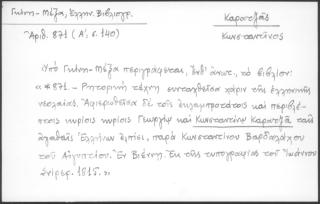 Γκίνη - Μέξα, Ἑλλην. Βιβλιογρ.
Καρατζᾶς
Ἀριθ. 871 (Α', σ. 140)
Κωνσταντῖνος
Ὑπὸ Γκίνη - Μέξα περιγράφεται, ἔνθ' ἀνωτ., τὸ βιβλίον:
«*871.- Ῥητορικὴ τέχνη συνταχθεῖσα χάριν τῆς ἑλληνικῆς
νεολαίας. Ἀφιερωθεῖσα δὲ τοῖς ἐκλαμπροτάτοις καὶ περιβλέ-
πτοις κυρίοις κυρίοις Γεωργίῳ καὶ Κωνσταντίνῳ Καρατζᾷ ταῖς
ἀγαθαῖς Ἑλλήνων ἐλπίσι, παρὰ Κωνσταντίνου Βαρδαλάχου
τοῦ Αἰγυπτίου. Ἐν Βιέννῃ. Ἐκ τῆς τυπογραφίας τοῦ Ἰωάννου
Σνίρερ. 1815.»